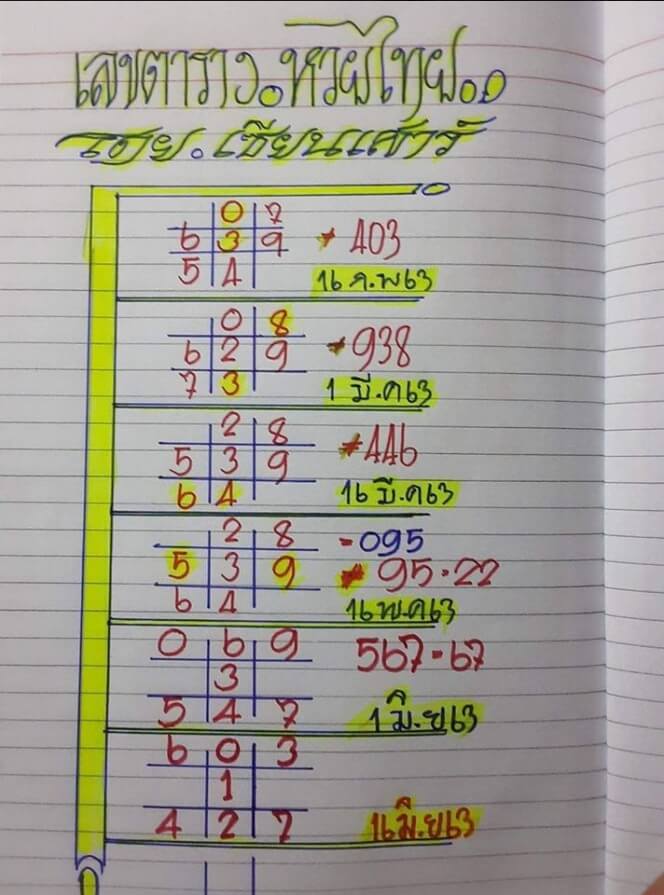 เลขตาราง.หวยไทย..
โดย.เซียนเสาร์
0 7
6 3 9 * 403
5 4 16 ก.พ63
0 8
6 2 9 * 938
7 3 1 มี.ค63
2 8
5 3 9 * 446
6 4 16 มี.ค63
2 8 - 095
5 3 9 * 95.22
6 4 16 พ.ค63
0 6 9 567.67
3
5 4 7 1 มิ.ย63
6 0 3
1
4 2 7 16 มิ.ย63